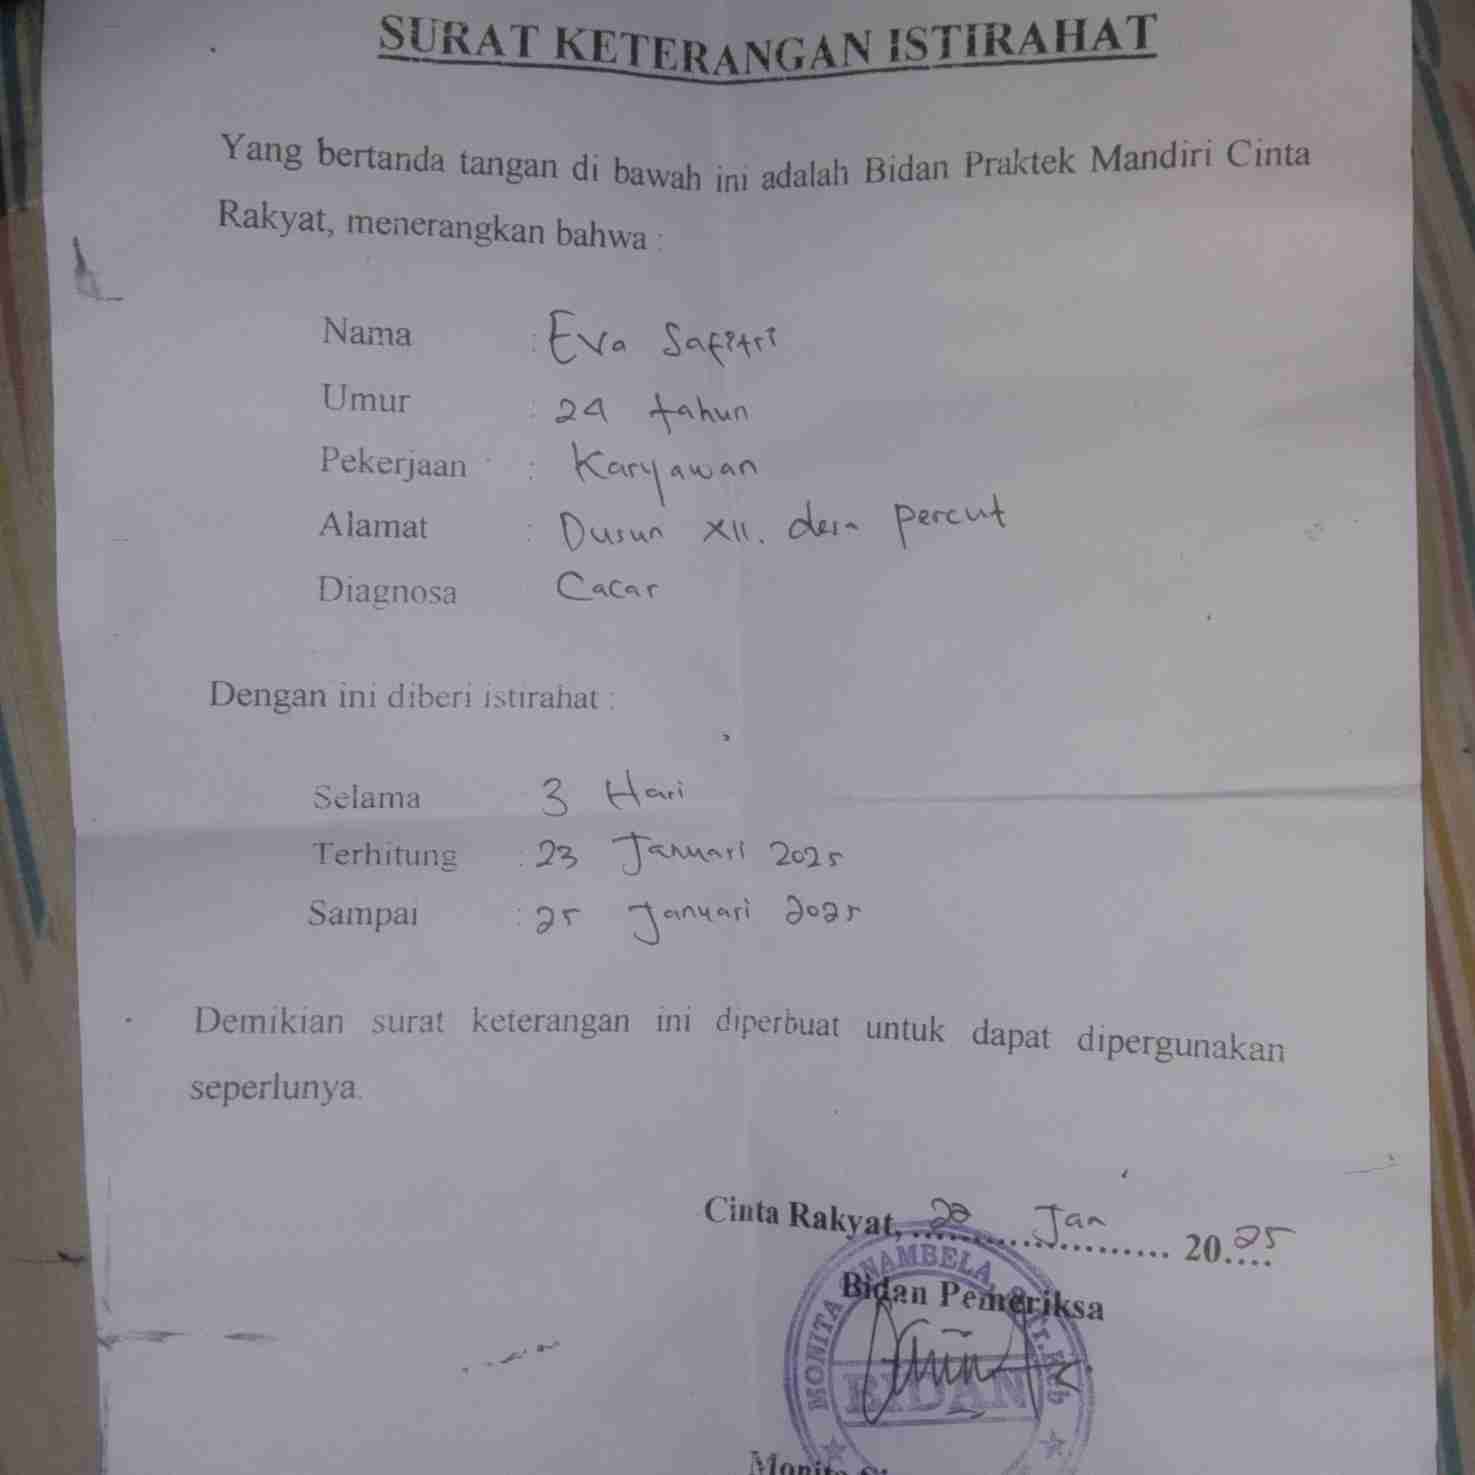 SURAT KETERANGAN ISTIRAHAT
Yang bertanda tangan di bawah ini adalah Bidan Praktek Mandiri Cinta
Rakyat, menerangkan bahwa :
Nama : Eva Safitri
Umur : 24 tahun
Pekerjaan : Karyawan
Alamat : Dusun XII. desa percut
Diagnosa Cacar
Dengan ini diberi istirahat :
Selama 3 Hari
Terhitung : 23 Januari 2025
Sampai : 25 Januari 2025
Demikian surat keterangan ini diperbuat untuk dapat dipergunakan
seperlunya.
Cinta Rakyat, ........ Jan ........ 2025
Bidan Pemeriksa
MONITA
BIDAN
Monita